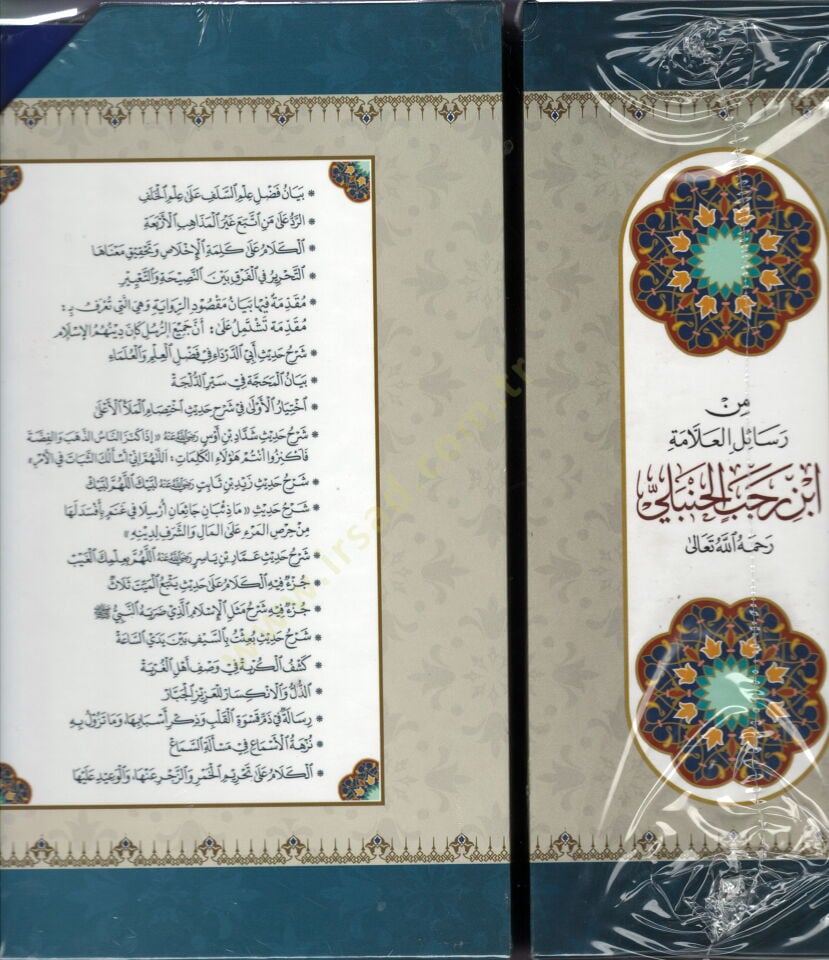 * بَيَانُ فَضْلِ عِلْمِ السَّلَفِ عَلَى عِلْمِ الْخَلَفِ
* الرَّدُّ عَلَى مَنِ اتَّبَعَ غَيْرَ الْمَذَاهِبِ الْأَرْبَعَةِ
* الْكَلَامُ عَلَى كَلِمَةِ الْإِخْلَاصِ وَتَحْقِيقِ مَعْنَاهَا
* التَّحْرِيرُ فِي الْفَرْقِ بَيْنَ النَّصِيحَةِ وَالتَّعْيِيرِ
* مُقَدِّمَةٌ فِيهَا بَيَانُ مَقْصُودِ الرِّوَايَةِ وَهِيَ الَّتِي تُعْرَفُ بِـ:
مُقَدِّمَة تَشْتَمِلُ عَلَى: أَنَّ جَمِيعَ الرُّسُلِ كَانَ دِينُهُمُ الْإِسْلَام
* شَرْحُ حَدِيثِ أَبِي الدَّرْدَاءِ فِي فَضْلِ الْعِلْمِ وَالْعُلَمَاءِ
* بَيَانُ الْمَحَجَّةِ فِي سَيْرِ الدُّلْجَةِ
* اخْتِيَارُ الْأَوْلَى فِي شَرْحِ حَدِيثِ اخْتِصَامِ الْمَلَأِ الْأَعْلَى
* شَرْحُ حَدِيثِ شَدَّادِ بْنِ أَوْسٍ رَضِيَ اللَّهُ عَنْهُ «إِذَا كَنَزَ النَّاسُ الذَّهَبَ وَالْفِضَّةَ
فَاكْنِزُوا أَنْتُمْ هَؤُلَاءِ الْكَلِمَاتِ: اللَّهُمَّ إِنِّي أَسْأَلُكَ الثَّبَاتَ فِي الْأَمْرِ»
* شَرْحُ حَدِيثِ زَيْدِ بْنِ ثَابِتٍ رَضِيَ اللَّهُ عَنْهُ لَبَّيْكَ اللَّهُمَّ لَبَّيْكَ
* شَرْحُ حَدِيثِ «مَا ذِئْبَانِ جَائِعَانِ أُرْسِلَا فِي غَنَمٍ بِأَفْسَدَ لَهَا
مِنْ حِرْصِ الْمَرْءِ عَلَى الْمَالِ وَالشَّرَفِ لِدِينِهِ»
* شَرْحُ حَدِيثِ عَمَّارِ بْنِ يَاسِرٍ رَضِيَ اللَّهُ عَنْهُ اللَّهُمَّ بِعِلْمِكَ الْغَيْبَ
* جُزْءٌ فِيهِ الْكَلَامُ عَلَى حَدِيثِ يَتْبَعُ الْمَيِّتَ ثَلَاثٌ
* جُزْءٌ فِيهِ شَرْحُ مَثَلِ الْإِسْلَامِ الَّذِي ضَرَبَهُ النَّبِيُّ ﷺ
* شَرْحُ حَدِيثِ بُعِثْتُ بِالسَّيْفِ بَيْنَ يَدَيِ السَّاعَةِ
* كَشْفُ الْكُرْبَةِ فِي وَصْفِ أَهْلِ الْغُرْبَةِ
* الذُّلُّ وَالِانْكِسَارُ لِلْعَزِيزِ الْجَبَّارِ
* رِسَالَةٌ فِي ذَمِّ قَسْوَةِ الْقَلْبِ وَذِكْرِ أَسْبَابِهَا، وَمَا تَزُولُ بِهِ
* نُزْهَةُ الْأَسْمَاعِ فِي مَسْأَلَةِ السَّمَاعِ
* الْكَلَامُ عَلَى تَحْرِيمِ الْخَمْرِ وَالزَّجْرِ عَنْهَا، وَالْوَعِيدِ عَلَيْهَا
مِنْ
رَسَائِلِ الْعَلَّامَةِ
ابْنِ رَجَبٍ الْحَنْبَلِيِّ
رَحِمَهُ اللَّهُ تَعَالَى
www.irsad.com.tr